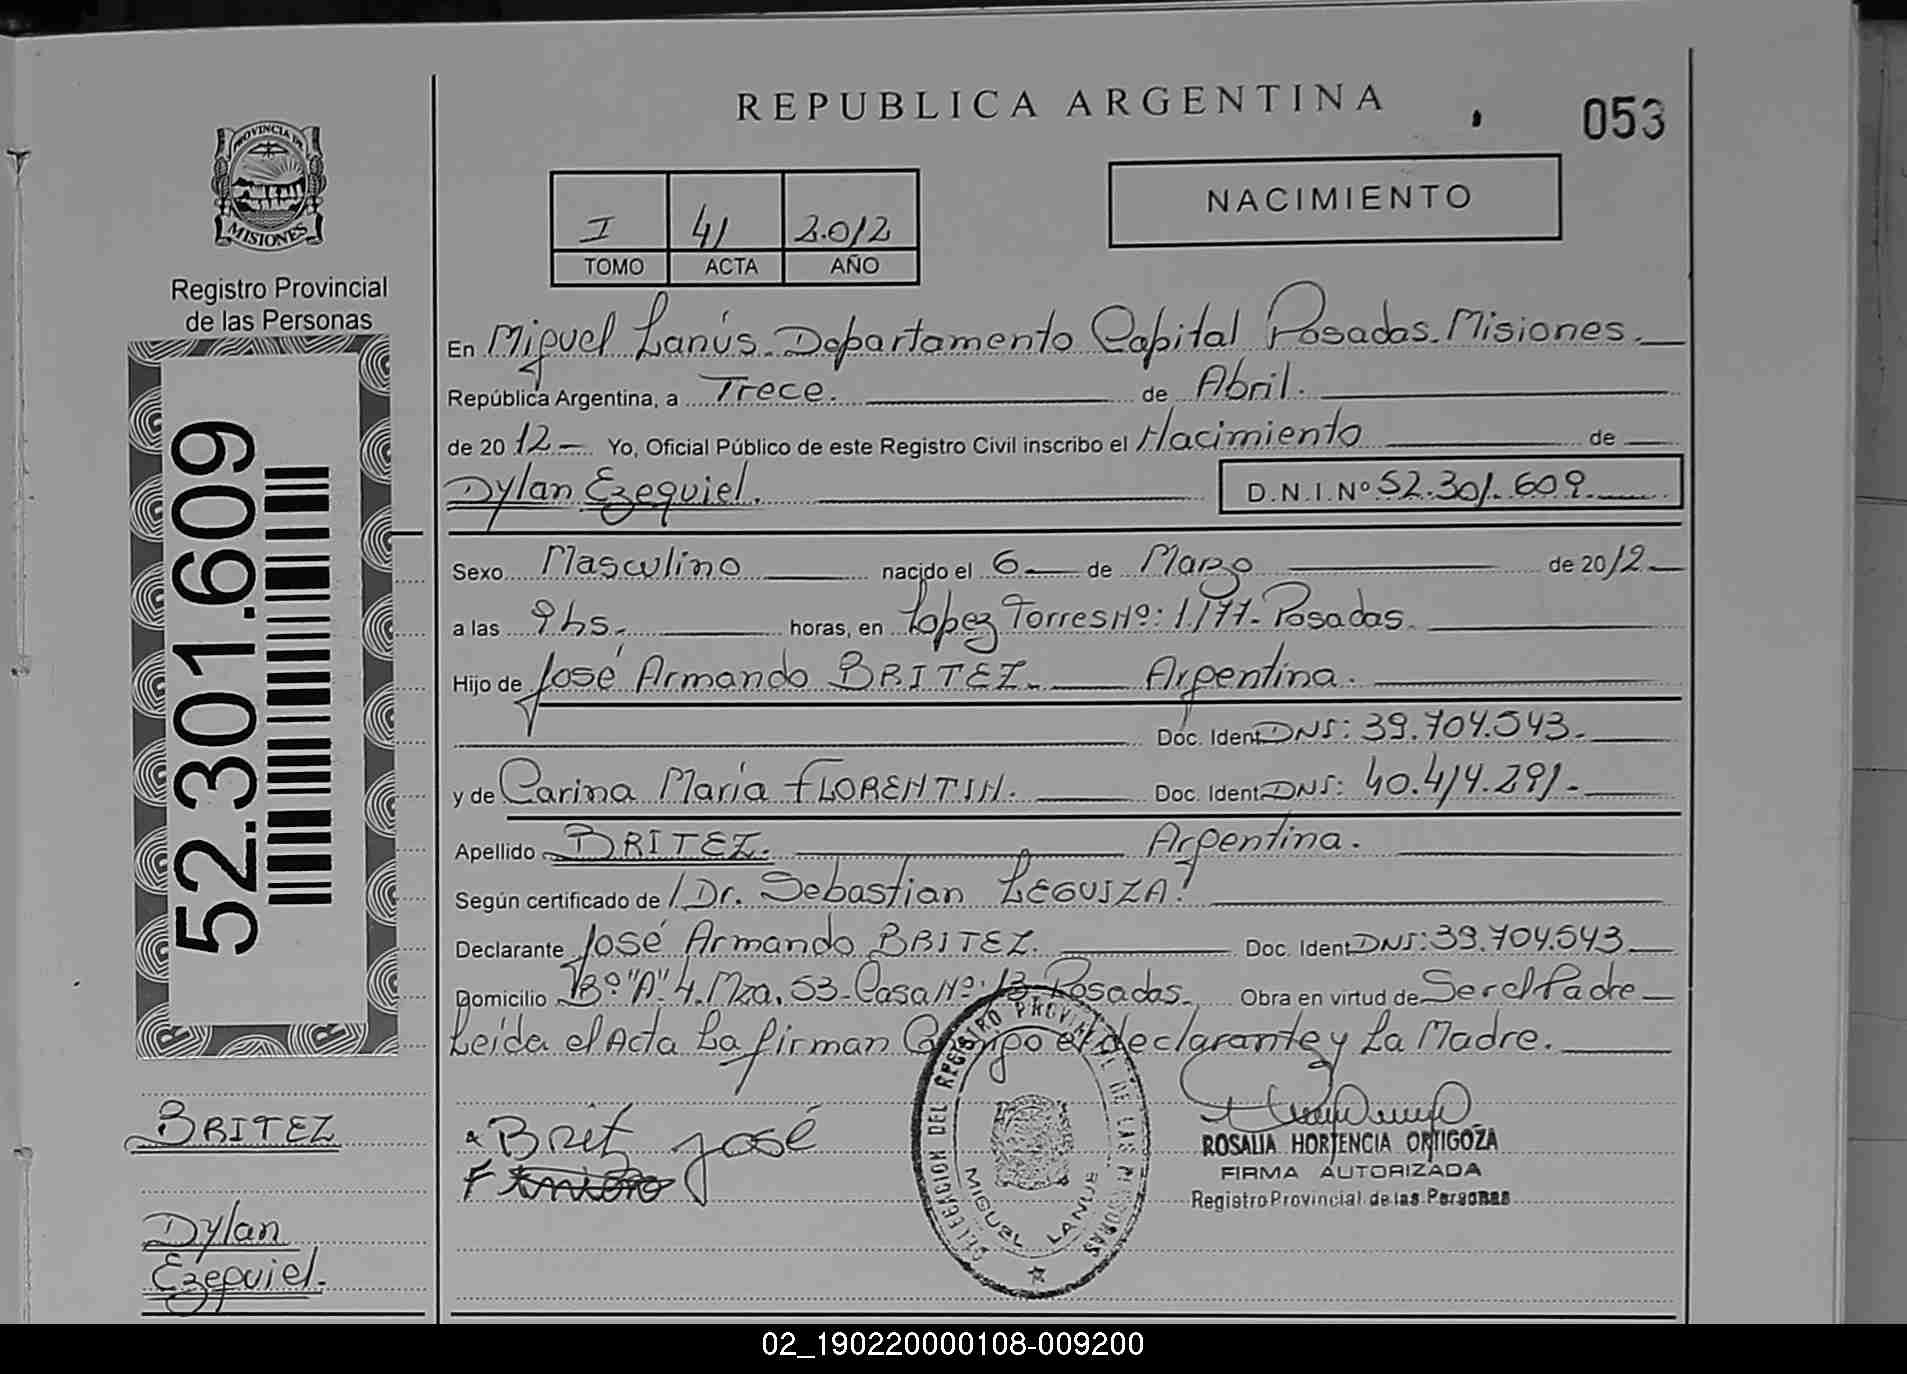 REPUBLICA ARGENTINA
053
PROVINCIA DE
MISIONES
Registro Provincial
de las Personas
I 41 2.012
TOMO ACTA AÑO
NACIMIENTO
En Miguel Lanús. Departamento Capital Posadas. Misiones.
República Argentina, a Trece. de Abril.
de 20 12 Yo, Oficial Público de este Registro Civil inscribo el Nacimiento de
Dylan Ezequiel. D.N.I.Nº 52.301.609.
52.301.609
Sexo Masculino nacido el 6 de Marzo de 2012
a las 9 hs. horas, en Lopez Torres Nº: 1.177. Posadas.
Hijo de José Armando BRITEZ. Argentina.
Doc. Ident DNI: 39.704.543.
y de Carina María FLORENTIN. Doc. Ident DNI: 40.414.291.
Apellido BRITEZ. Argentina.
Según certificado de Dr. Sebastian LEGUIZA
Declarante José Armando BRITEZ. Doc. Ident DNI: 39.704.543
Domicilio Bº "A" 4. Mza. 53. Casa Nº: 13 Posadas. Obra en virtud de Ser el Padre
Leída el Acta La firman el declarante y La Madre.
BRITEZ
Dylan
Ezequiel.
Brit José
DELEGACION DEL REGISTRO PROVINCIAL DE LAS PERSONAS
MIGUEL LANUS
ROSALIA HORTENCIA ORTIGOZA
FIRMA AUTORIZADA
Registro Provincial de las Personas
02_190220000108-009200